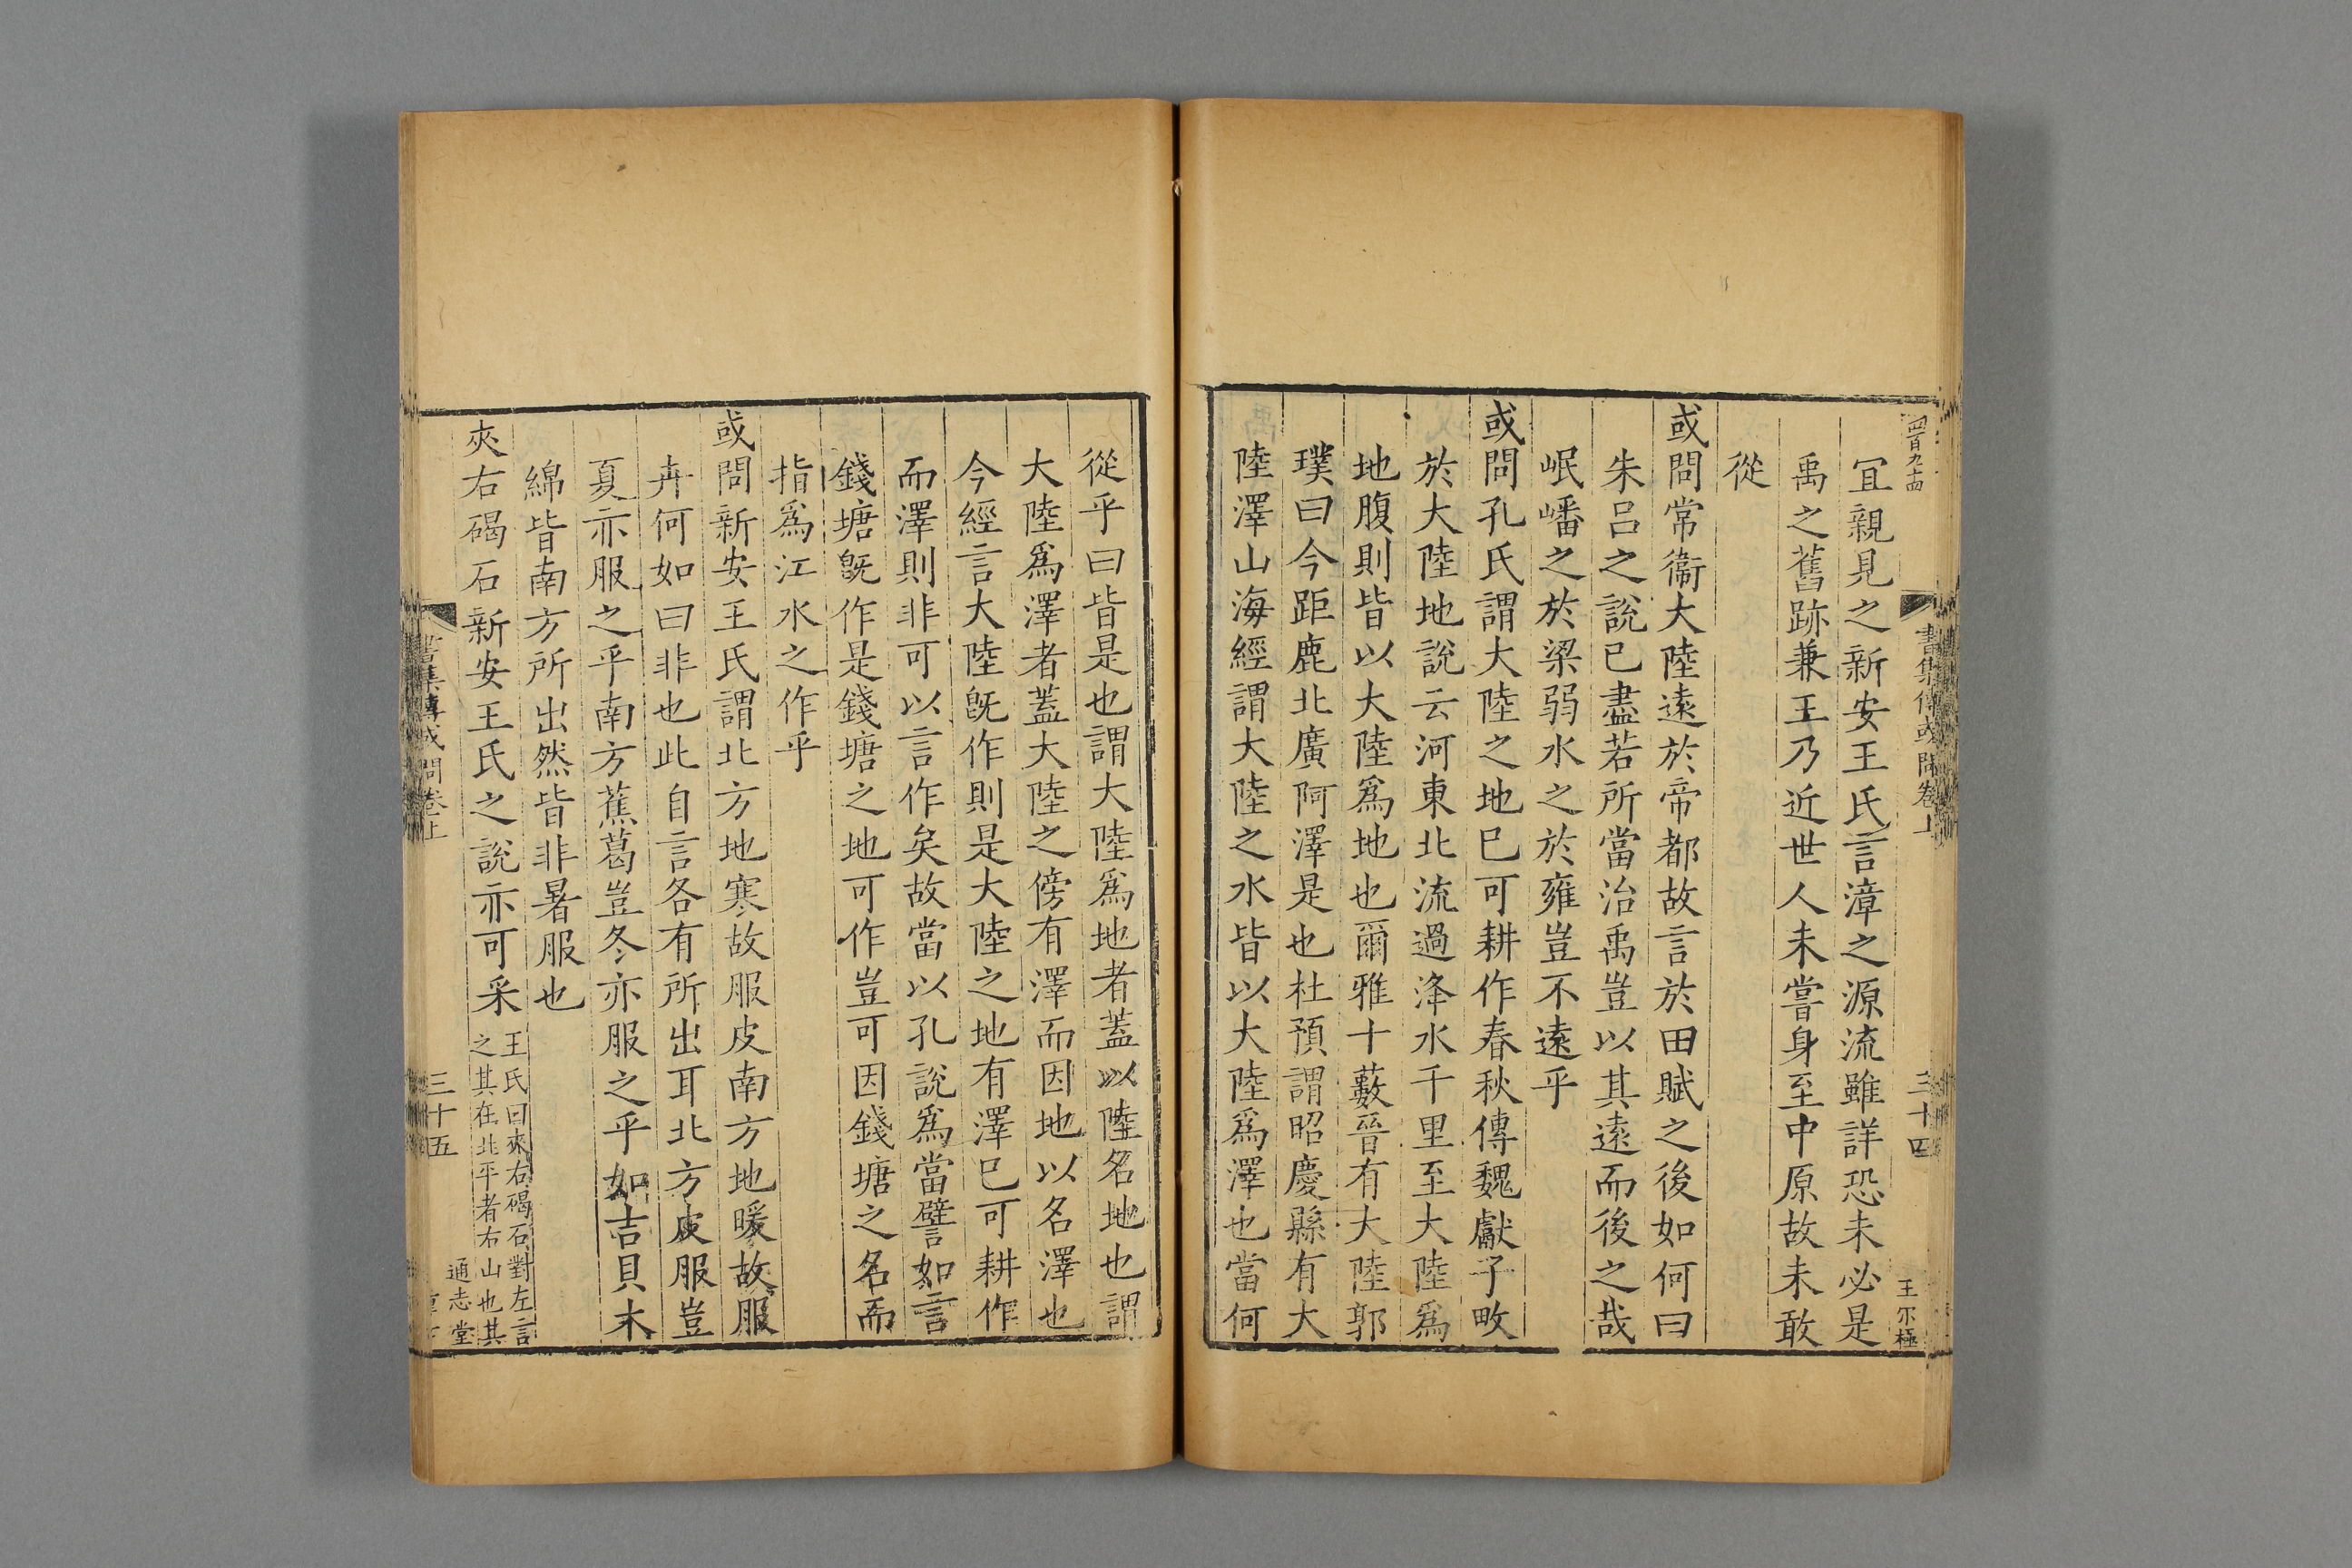 四百九十四
書集傳或問卷上
三十四
王尔極
冝親見之新安王氏言漳之源流雖詳恐未必是
禹之舊跡兼王乃近世人未嘗身至中原故未敢
從
或問常衞大陸遠於帝都故言於田賦之後如何曰
朱吕之說已盡若所當治禹豈以其遠而後之哉
岷嶓之於梁弱水之於雍豈不遠乎
或問孔氏謂大陸之地已可耕作春秋傳魏獻子畋
於大陸地說云河東北流過洚水千里至大陸爲
地腹則皆以大陸爲地也爾雅十藪晉有大陸郭
璞曰今距鹿北廣阿澤是也杜預謂昭慶縣有大
陸澤山海經謂大陸之水皆以大陸爲澤也當何
從乎曰皆是也謂大陸爲地者蓋以陸名地也謂
大陸爲澤者蓋大陸之傍有澤而因地以名澤也
今經言大陸旣作則是大陸之地有澤已可耕作
而澤則非可以言作矣故當以孔說爲當譬如言
錢塘旣作是錢塘之地可作豈可因錢塘之名而
指爲江水之作乎
或問新安王氏謂北方地寒故服皮南方地暖故服
卉何如曰非也此自言各有所出耳北方皮服豈
夏亦服之乎南方蕉葛豈冬亦服之乎如吉貝木
綿皆南方所出然皆非暑服也
夾右碣石新安王氏之說亦可采
王氏曰夾右碣石對左言
之其在北平者右山也其
書集傳或問卷上
三十五
通志堂